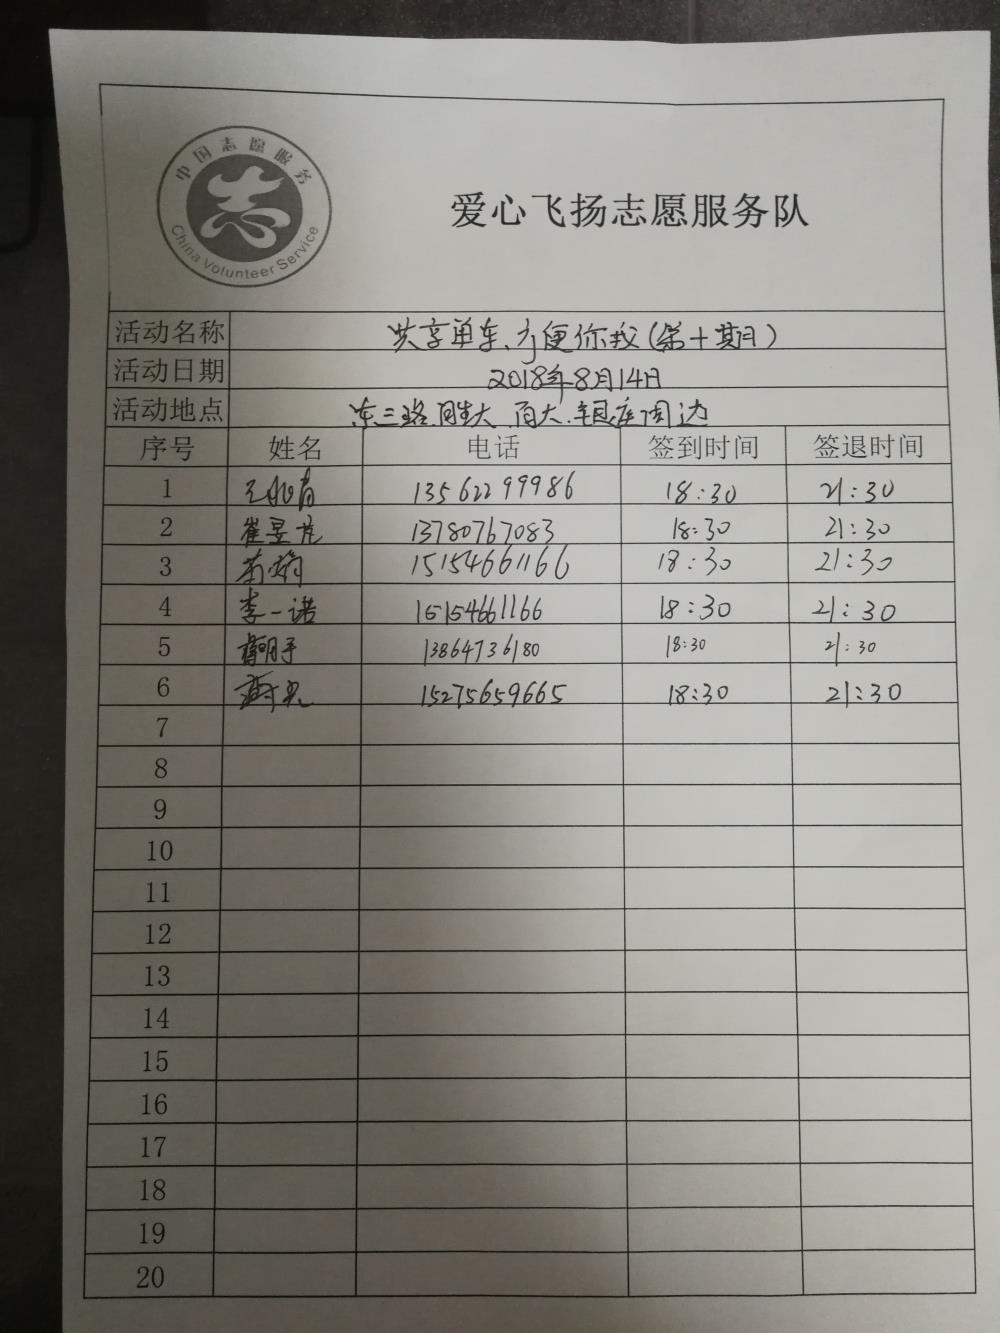 中国志愿服务
China Volunteer Service
爱心飞扬志愿服务队
活动名称 共享单车、方便你我(第十期)
活动日期 2018年8月14日
活动地点 东三路.胜大.百大.银座周边
序号 姓名 电话 签到时间 签退时间
1 13562299986 18:30 21:30
2 崔昱 13780767083 18:30 21:30
3 15154661166 18:30 21:30
4 李一诺 15154661166 18:30 21:30
5 13864736180 18:30 21:30
6 15275659665 18:30 21:30
7
8
9
10
11
12
13
14
15
16
17
18
19
20